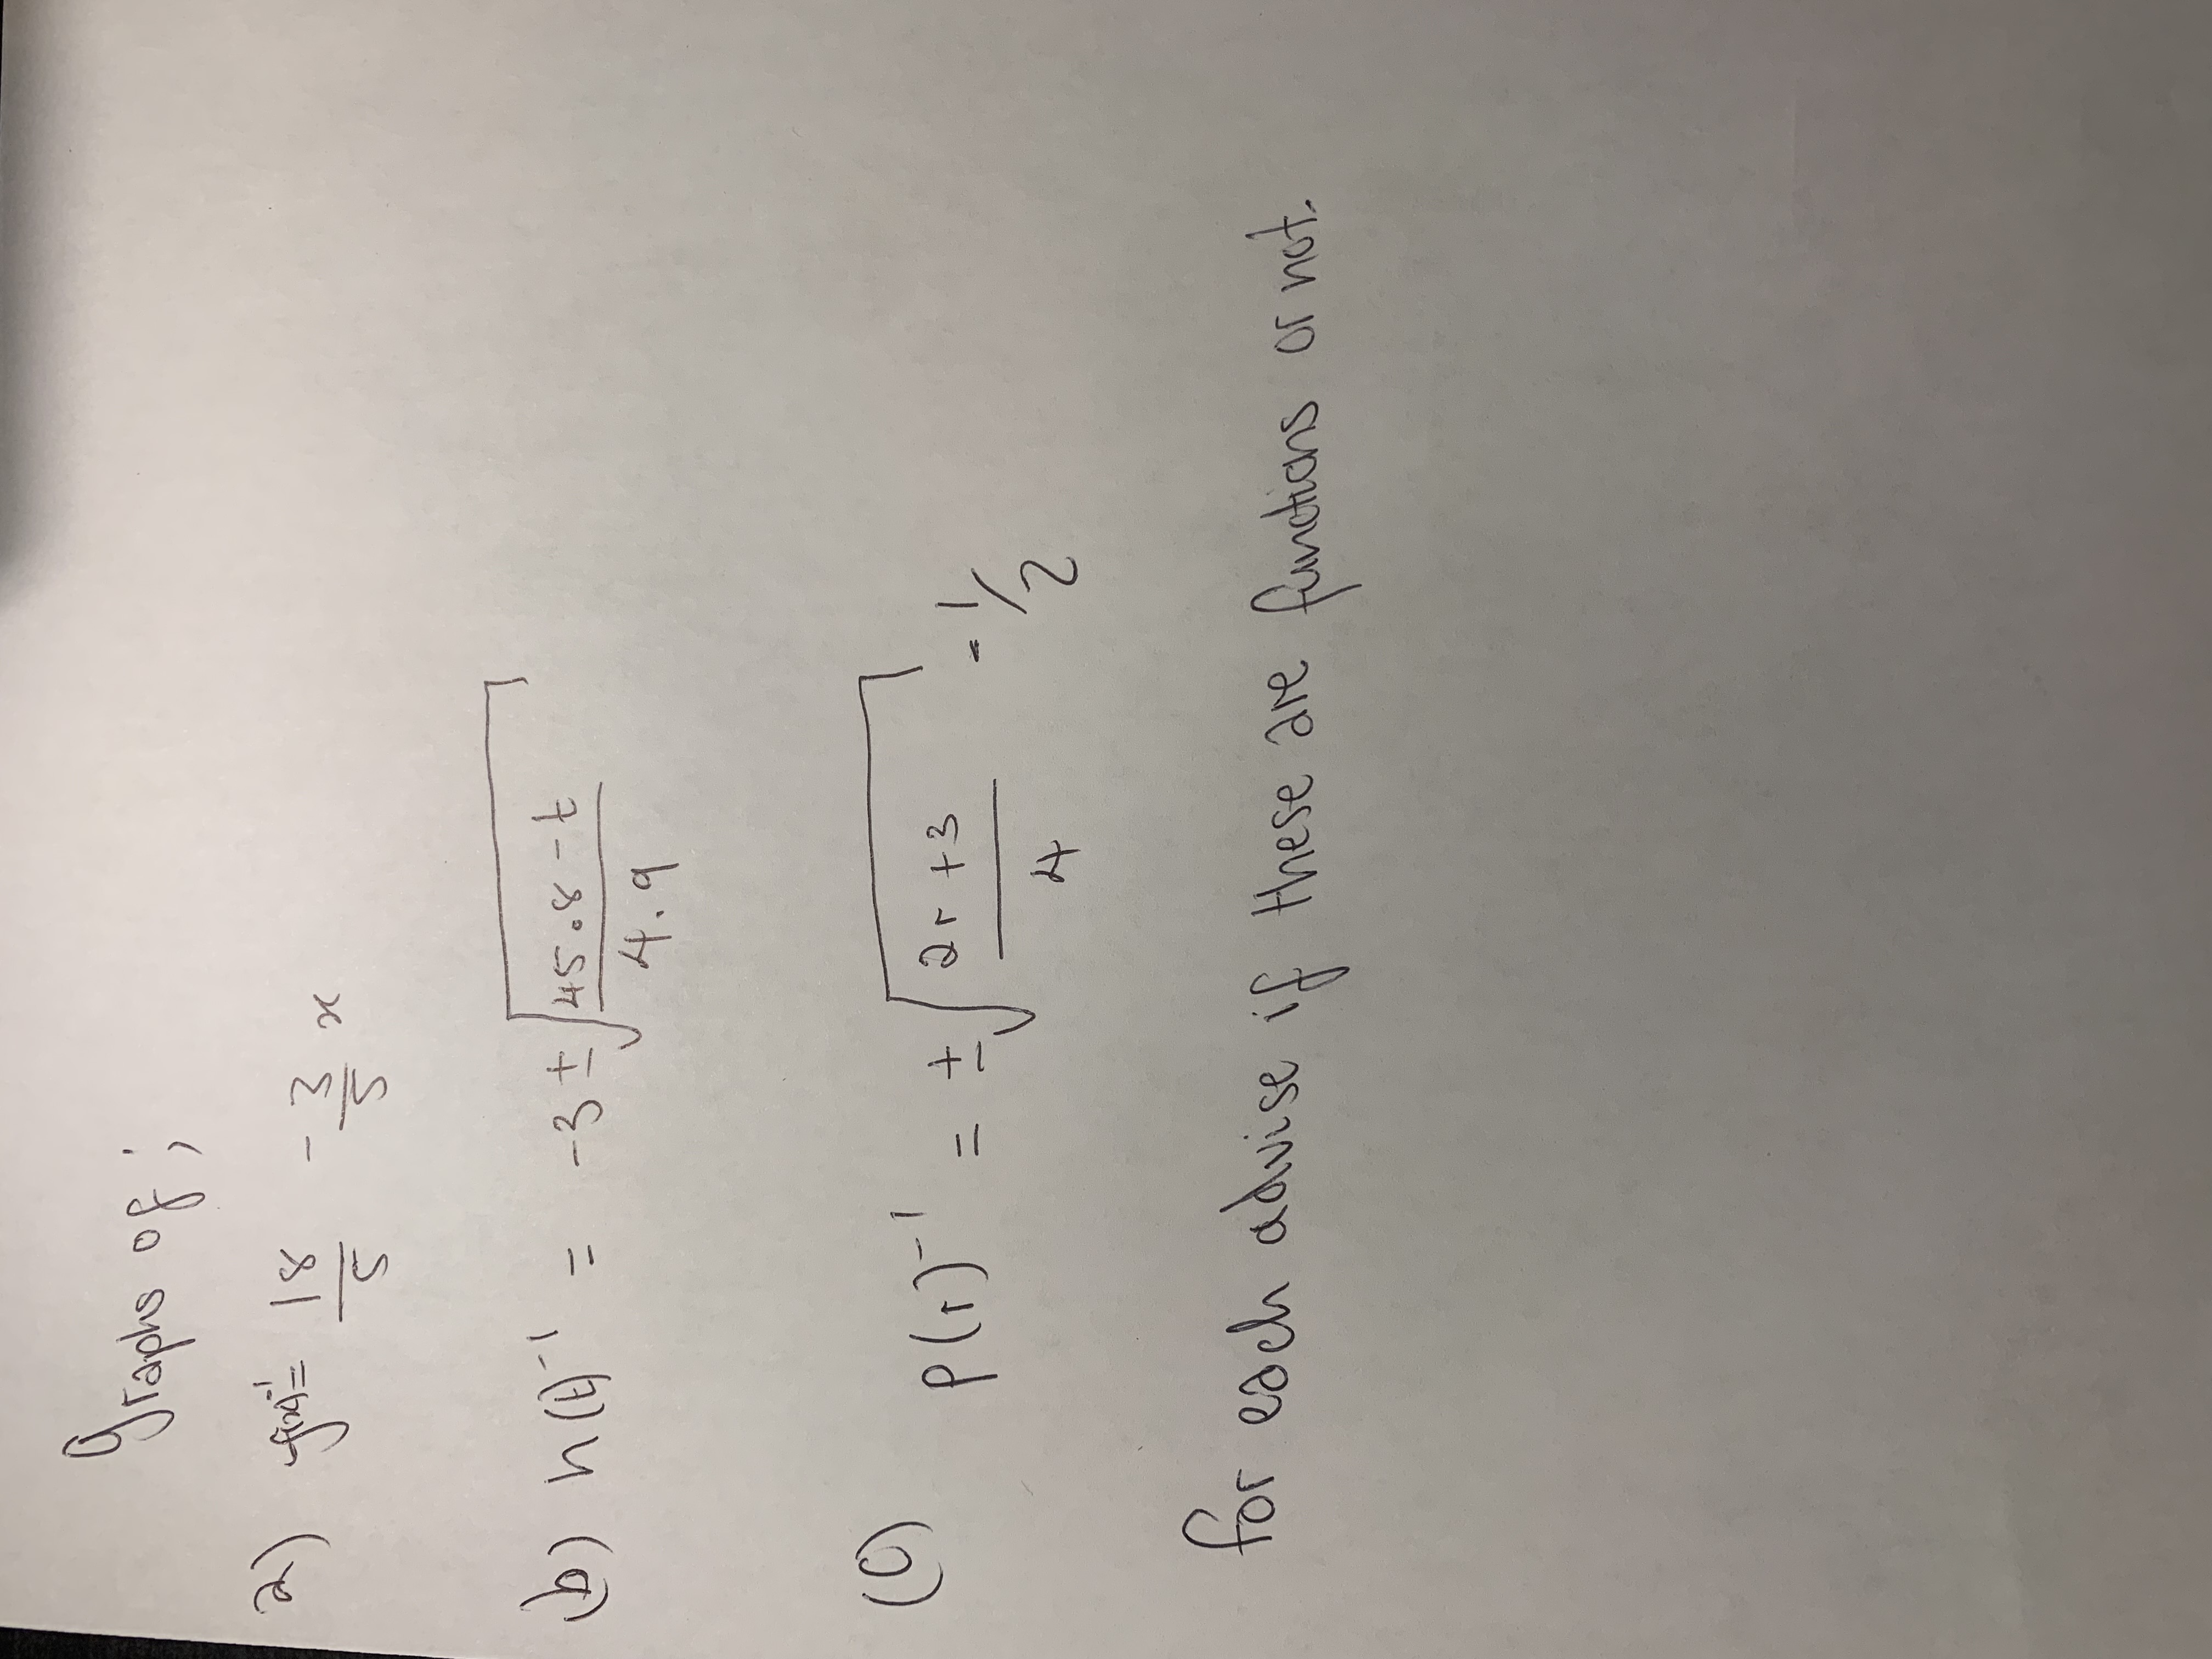 Graphs of;
a) f(x)⁻¹ = 18/5 - 3/5 x
(b) h(t)⁻¹ = -3 ± √((45.8 - t)/4.9)
(c) P(r)⁻¹ = ± √((2r + 3)/4) - 1/2
for each advise if these are functions or not.